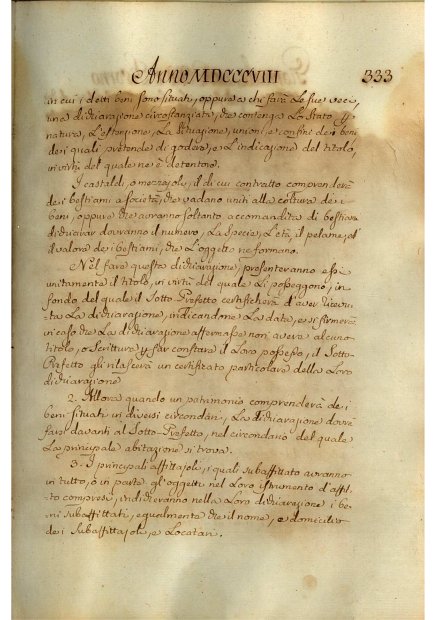 Anno MDCCCVIII 333
in cui i detti beni sono situati, oppure a chi farà le sue veci,
una dichiarazione circostanziata, che contenga lo stato, q.
natura, l'estensione, la situazione, unioni, e confini dei beni
dei quali pretende di godere, e l'indicazione del titolo,
in virtù del quale ne è detentore.
I castaldi, o mezzajoli, il di cui contratto comprenderà
dei bestiami a società, che vadano uniti alla coltura dei
beni, oppure che avranno soltanto accomandita di bestiami
dichiarar dovranno il numero, la specie, l'età, il pelame, ed
il valore dei bestiami, che l'oggetto ne formano.
Nel fare questa dichiarazione, presenteranno essi
unitamente il titolo, in virtù del quale li posseggono, in
fondo del quale il Sotto Prefetto certificherà d'aver ricevu-
ta la dichiarazione, indicandone la data, e si firmerà
in caso che la dichiarazione affermasse non avere alcuno
titolo, o scrittura per far constare il loro possesso, il Sotto-
Prefetto gli rilascerà un certificato particolare della loro
dichiarazione
2. Allora quando un patrimonio comprenderà dei
beni situati in diversi circondari, la dichiarazione dovrà
farsi davanti al Sotto-Prefetto, nel circondario del quale
la principale abitazione si trova.
3. I principali affittajoli, i quali subaffittato avranno
in tutto, o in parte gl'oggetti nel loro istrumento d'affit-
to compresi, indicheranno nella loro dichiarazione i be-
ni subaffittati, egualmente che il nome, e domicilio
dei subaffittajoli, e locatari.